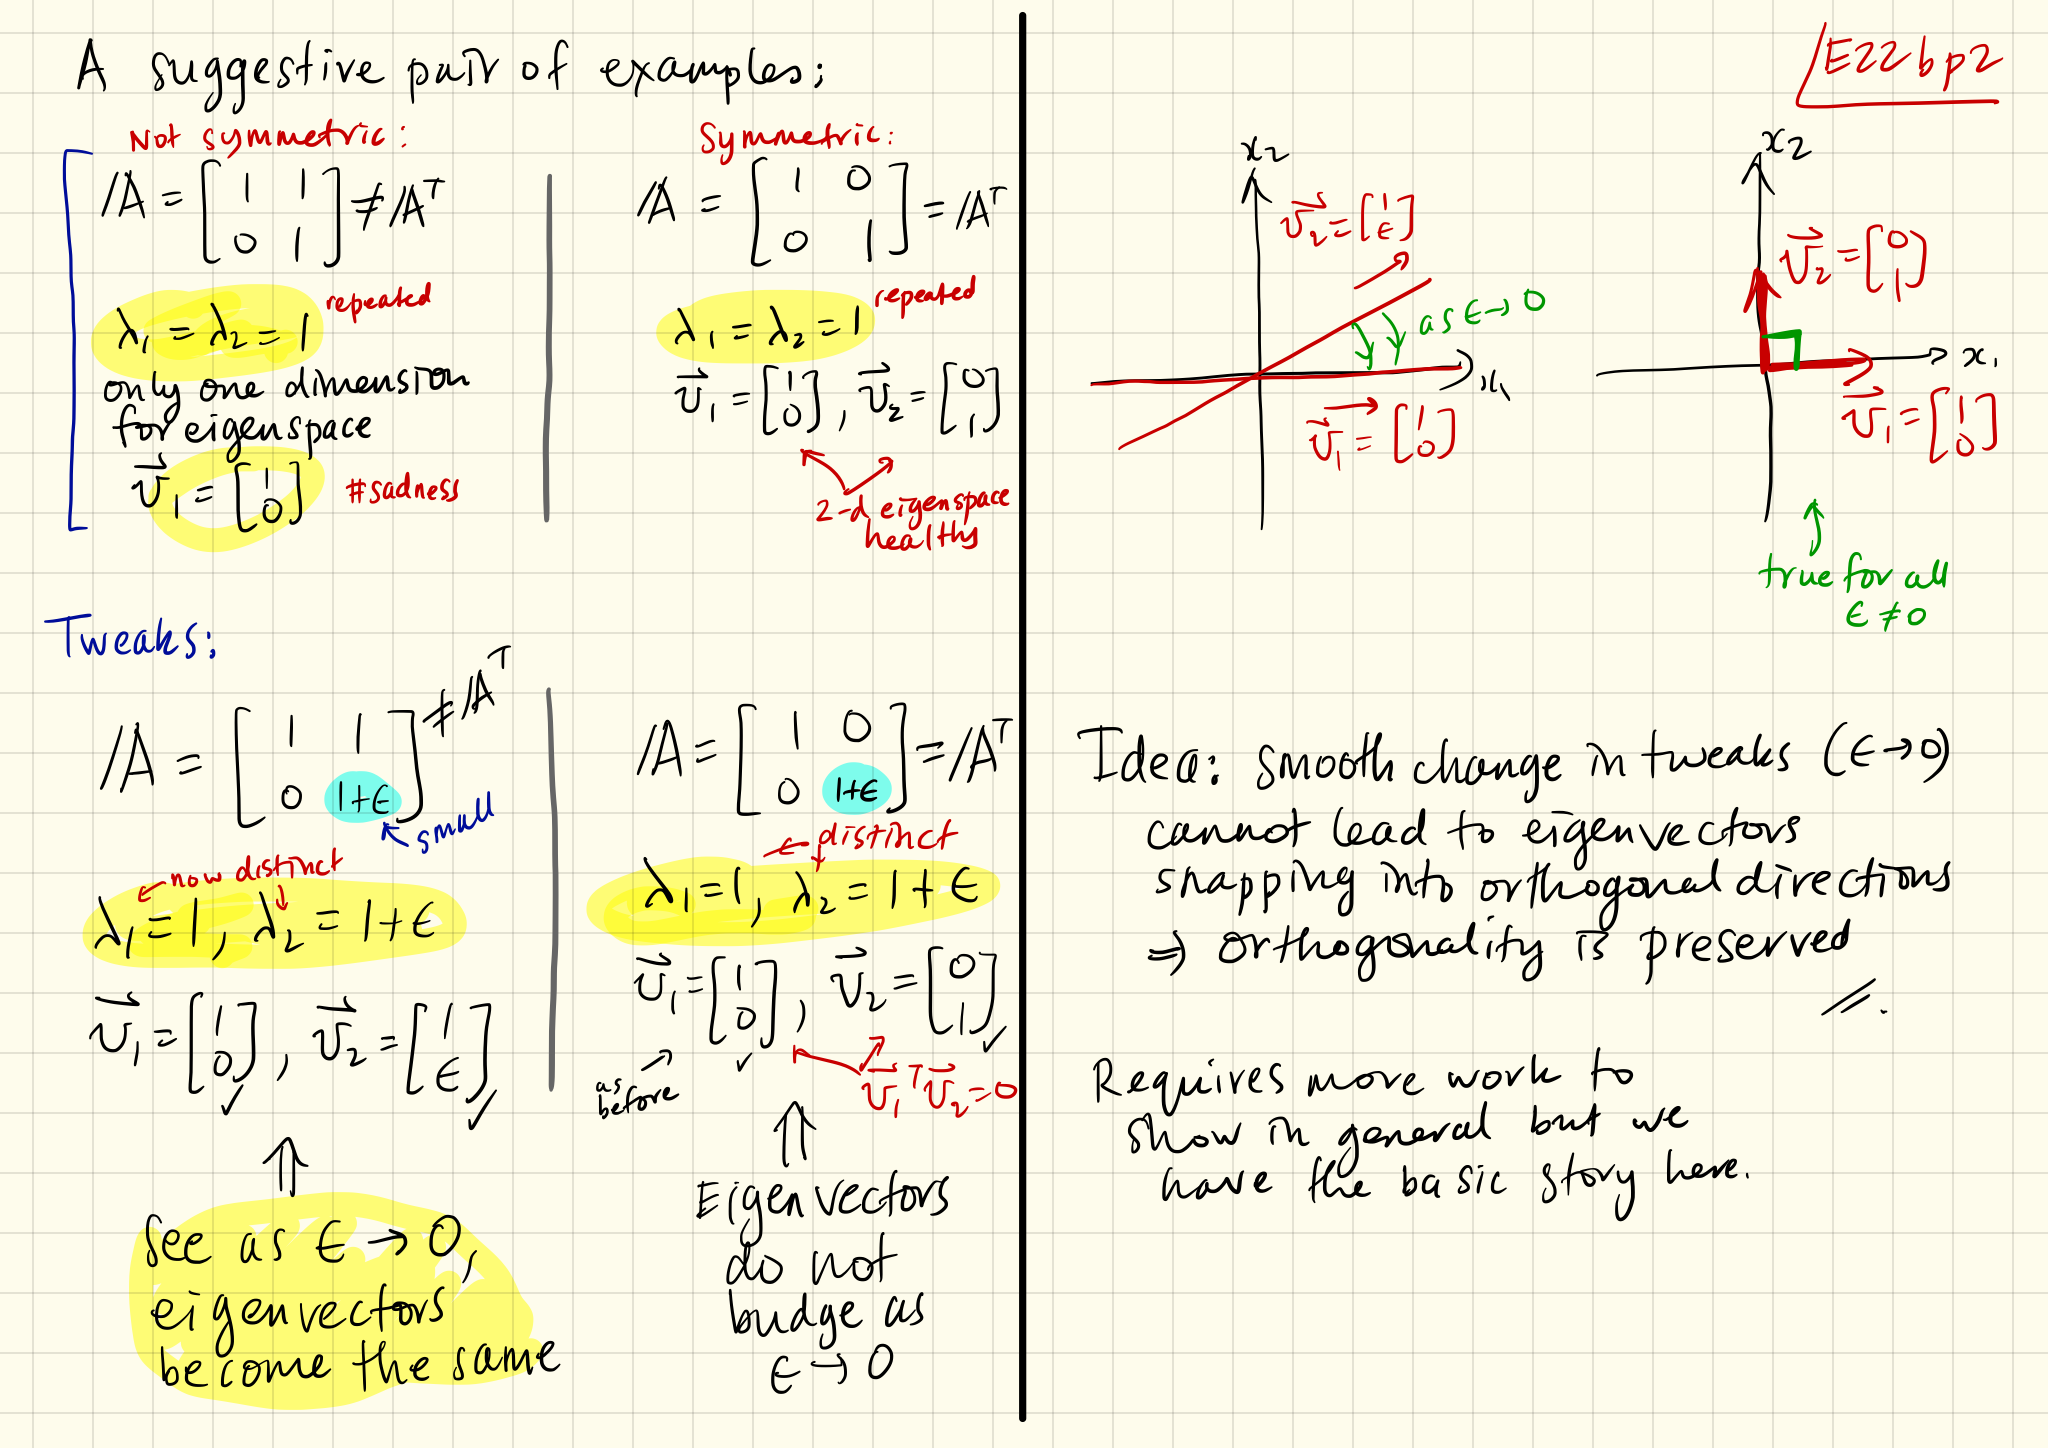 A suggestive pair of examples:
Not symmetric:
A = [1 1; 0 1] ≠ Aᵀ
λ₁ = λ₂ = 1 repeated
only one dimension
for eigenspace
v⃗₁ = [1; 0] #sadness
Symmetric:
A = [1 0; 0 1] = Aᵀ
λ₁ = λ₂ = 1 repeated
v⃗₁ = [1; 0], v⃗₂ = [0; 1]
2-d eigenspace
healthy
Tweaks:
A = [1 1; 0 1+ε] ≠ Aᵀ
small
now distinct
λ₁ = 1, λ₂ = 1+ε
v⃗₁ = [1; 0], v⃗₂ = [1; ε]
✓ ✓
⇑
See as ε → 0,
eigenvectors
become the same
A = [1 0; 0 1+ε] = Aᵀ
distinct
λ₁ = 1, λ₂ = 1+ε
v⃗₁ = [1; 0], v⃗₂ = [0; 1]
✓ ✓
as
before
v⃗₁ᵀv⃗₂ = 0
⇑
Eigenvectors
do not
budge as
ε → 0
E22bp2
x₂
v⃗₂ = [1; ε]
as ε → 0
x₁
v⃗₁ = [1; 0]
x₂
v⃗₂ = [0; 1]
x₁
v⃗₁ = [1; 0]
true for all
ε ≠ 0
Idea: smooth change in tweaks (ε → 0)
cannot lead to eigenvectors
snapping into orthogonal directions
⇒ orthogonality is preserved
//.
Requires more work to
show in general but we
have the basic story here.